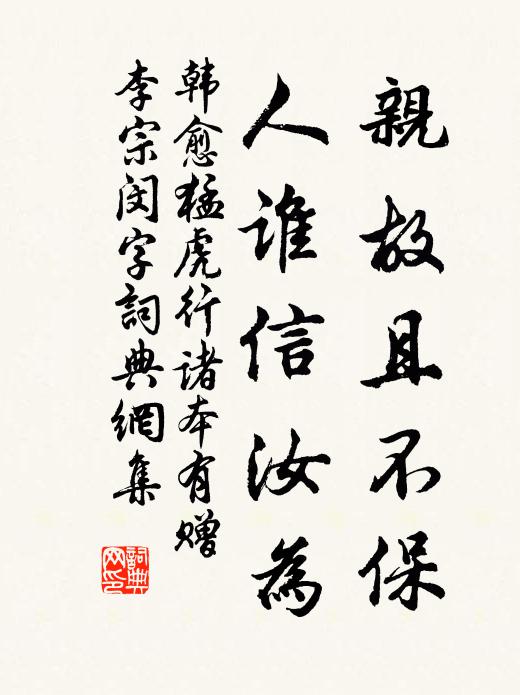 親故且不保
人誰信汝為
韩愈猛虎行诸本有赠
李宗闵字詞典網集
詞典
网印